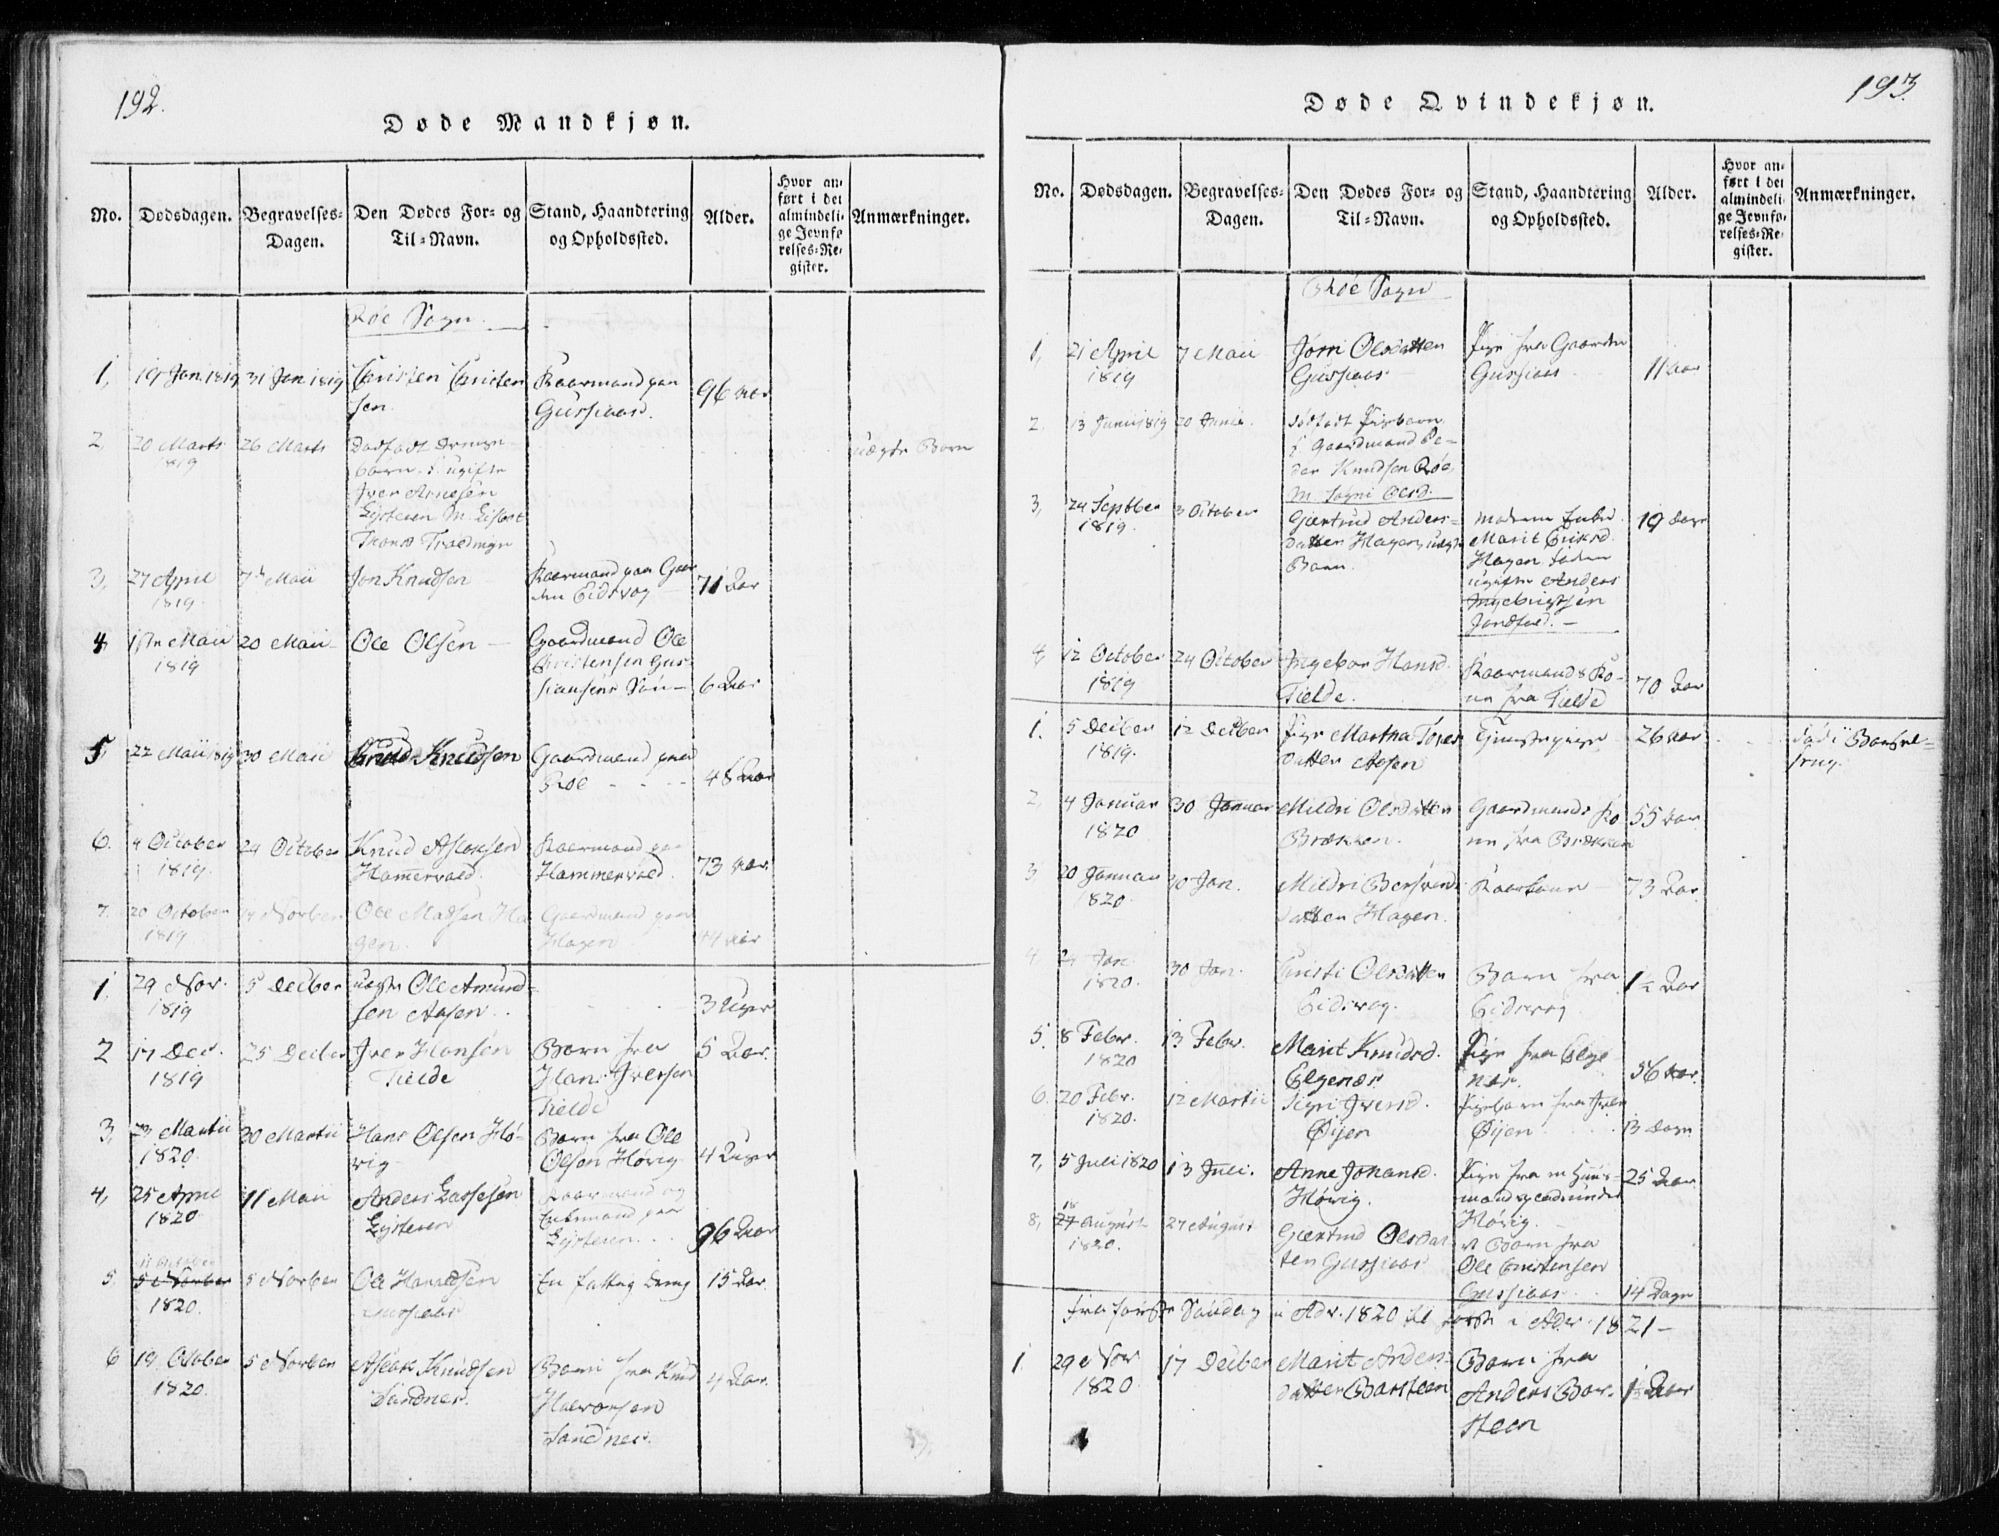 192.
Døde Mandkjøn.
No. Dødsdagen. Begravelses-Dagen. Den Dødes For- og Til-Navn. Stand, Haandtering og Opholdssted. Alder. Hvor anført i det almindelige Jevnførelses-Register. Anmærkninger.
Røe Sogn
1, 19 Jan 1819 31 Jan 1819 Christen Christensen Kaarmand paa Gussiaas. 96 Aar
2, 20 Marts 1819 26 Marts Dødfødt Drengebarn. F. ugifte Iver Arnesen Eysteen M. Lisbet Uægte Barn
3, 27 April 1819. 7de Maii Jon Knudsen Kaarmand paa Gaarden Eidsvog 71 Aar
4, Maii 1819 20 Maii Ole Olsen — Gaardmand Ole Christensen Gussiaasens Søn — 6 Aar
5 22 Maii 1819 30 Maii Knud Knudsen Gaardmand paa Røe 48 Aar
6. 4 October 1819. 24 October Knud Aslaksen Hamervold. Kaarmand paa Hammervold. 73 Aar.
7. 20 October 1819 14 Novber Ole Madsen Hagen. Gaardmand paa Hagen 44 Aar
1. 29 Nov. 1819 5 Decber uægte Ole Amundsen Aasen. 3 Uger
2 17 Dec. 1819 25 Decber Iver Hansen Tielde Barn fra Hans Iversen Tielde 5 Aar.
3, 23 Martii 1820. 30 Martii Hans Olsen Høvig Barn fra Ole Olsen Høvig 4 Uger
4, 25 April 1820 11 Maii Anders Lassesen Eysteen Kaarmand og Enkemand paa Eysteen 96 Aar
5. 5 Novber 1820. 5 Novber Ole Haraldsen Gussiaas En fattig Dreng 15 Aar.
6 19 October 1820. 5 Novber Aslak Knudsen Sandnes. Barn fra Knud Halvorsen Sandnes. 4 Aar.
193.
Døde Qvindekjøn.
No. Dødsdagen. Begravelses-Dagen. Den Dødes For- og Til-Navn. Stand, Haandtering og Opholdssted. Alder. Hvor anført i det almindelige Jevnførelses-Register. Anmærkninger.
Røe Sogn
1, 21 April 1819 7 Maii Jørn Olsdatter Gussiaas Pige fra Gaarden Gussiaas 11 Aar
2. 13 Junii 1819 20 Junii. dødfødt Pigebarn. F Gaardmand Peder Knudsen Røe. M. Signi Olsd.
3, 24 Septber 1819. 3 October Giertrud Andersdatter Hagen, uægte Barn. Moderen Marit Eriksd. Hagen. Faderen ugifte Anders Ingebrigtsen 19 Dage
4, 12 October 1819 24 October Ingebor Hansd. Tielde. Kaarmands Kone fra Tielde 70 Aar
1. 5 Decber 1819. 12 Decber Pige Martha Toresdatter Aasen Tienestepige 26 Aar død i Barselseng.
2, 4 Januar 1820 30 Januar Mildri Olsdatter Brækken. Gaardmands Kone fra Brækken 55 Aar
3 20 Januar 1820. 30 Jan. Mildri Bersvendsdatter Hagen. Kaarkone 73 Aar.
4 21 Jan 1820. 30 Jan. Christi Olsdatter Eidsvog. Barn fra Eidsvog 1½ Aar
5. 8 Febr. 1820 13 Febr. Marit Knudsd. Elgenæs Pige fra Elgenæs. 56 Aar.
6. 20 Febr. 1820. 12 Martii Sigri Iversd. Øijen Pigebarn fra Iver Øijen 13 Dage
7, 5 Juli 1820 13 Juli. Anne Johansd. Høvig. Pige fra en Huusmandsplads under Høvig. 25 Aar
8, 18 27 August 1820. 27 August Giertrud Olsdatter Gussiaas et Barn fra Ole Christensen Gussiaas 14 Dage
Fra første Søndag i Adv. 1820 til første i Adv. 1821 —
1. 29 Nov 1820. 17 Decber Marit Andersdatter Barsteen Barn fra Anders Barsteen 1½ Aar